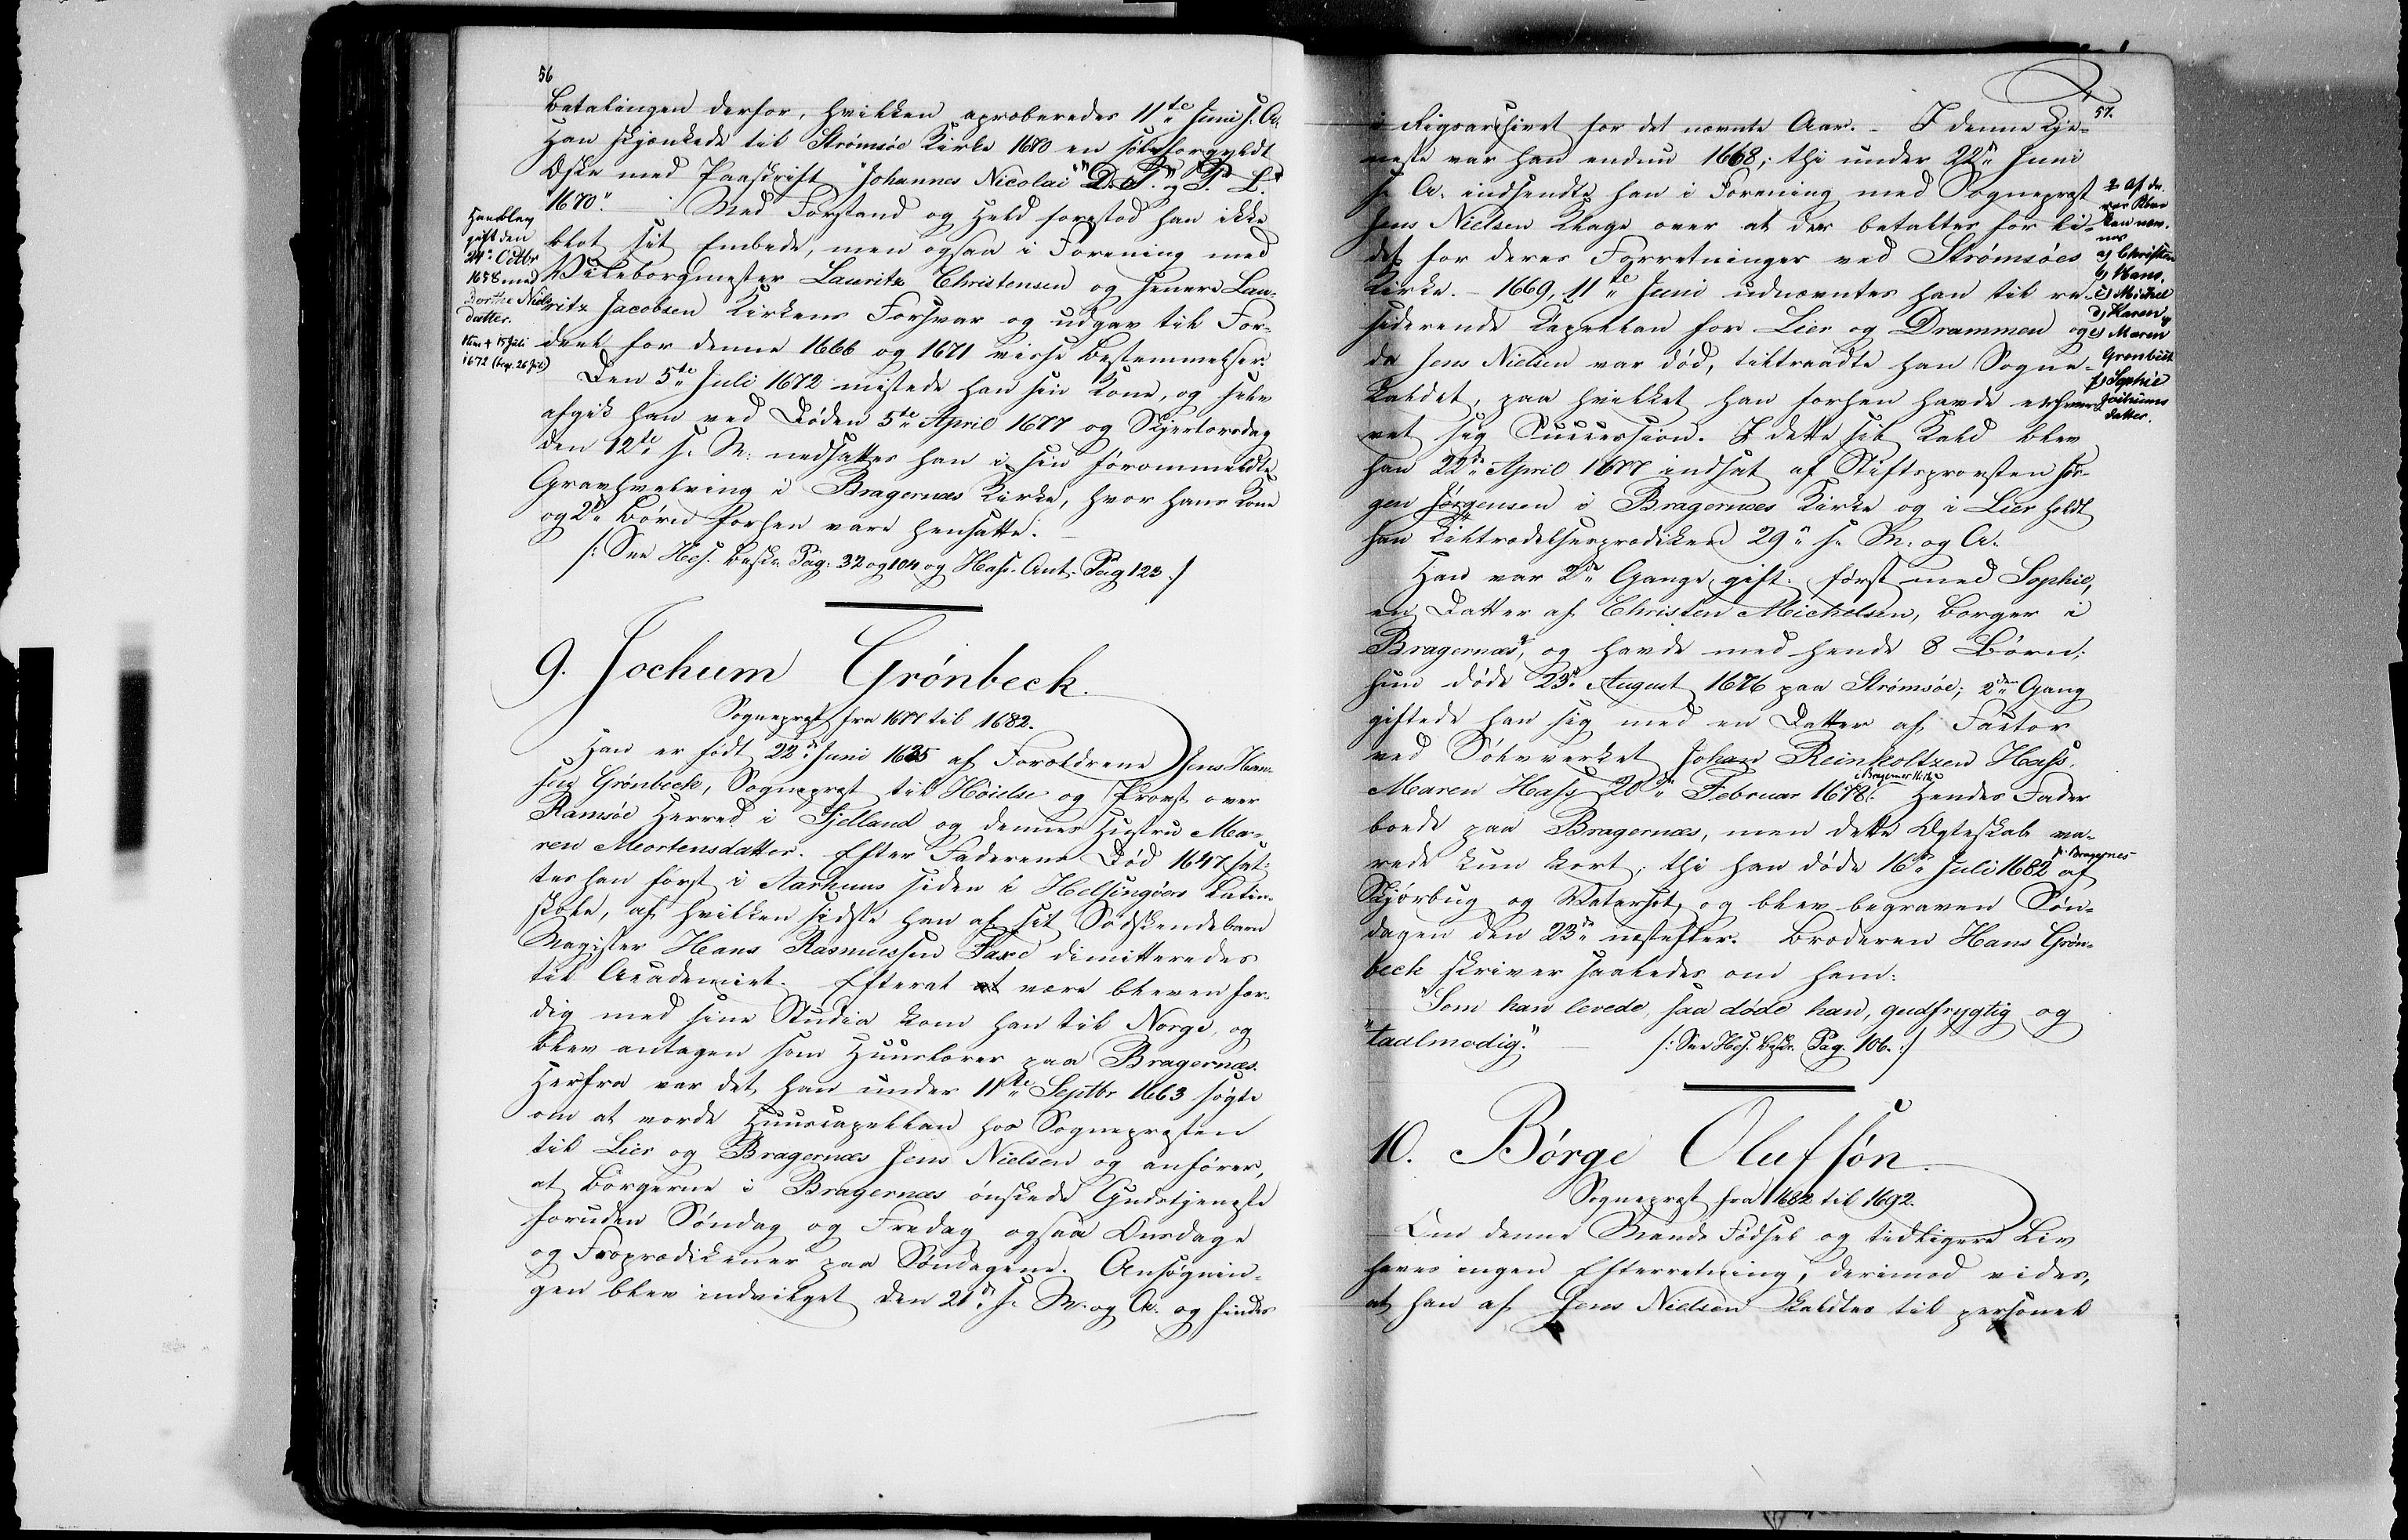 56
Betalingen derfor, hvilken aproberedes 11te Juni s. A.
Han skjænkede til Strømsøe Kirke 1670 en sølvforgyldt
Æske med Paaskrift "Johannes Nicolai D. S. P. L.
1670". Med Forstand og Held forestod han ikke
blot sit Embede, men ogsaa i Forening med
Viceborgmester Lauritz Christensen og senere Lau-
ritz Jacobsen Kirkens Forsvar og udgav til For-
deel for denne 1666 og 1671 visse Bestemmelser.
Den 5te Juli 1672 mistede han sin Kone, og selv
afgik han ved Døden 5te April 1677 og Skjertorsdag
den 12te s. M. nedsattes han i sin førommeldte
Gravhvelving i Bragernæs Kirke, hvor hans Kone
og 2de Børn forhen vare hensatte.
/: See Hes. Beskr. Pag. 32 og 104 og Hass. Ant. Pag 123 :/
Han blev
gift den
24de Octbr
1658 med
Dorthe Niels
datter.
Hun + 15 Juli
1672 (begr. 26 Juli)
9. Jochum Grónbeck.
Sognepræst fra 1677 til 1682.
Han er født 22de Juni 1635 af Forældrene Jens Han-
sen Grønbeck, Sognepræst til Höielse og Provst over
Ramsöe Herred i Sjelland og dennes Hustru Ma-
ren Mortensdatter. Efter Faderens Død 1647 sat-
tes han først i Aarhuus siden i Helsingöers Latin-
skole, af hvilken sidste han af sit Sødskendebarn
Magister Hans Rasmussen Faxe dimitteredes
til Academiet. Efterat at være bleven fær-
dig med sine Studia kom han til Norge, og
blev antagen som Huuslærer paa Bragernæs.
Herfra var det, han under 11te Septbr 1663 søgte
om at vorde Huuscapellan hos Sognepræsten
til Lier og Bragernæs Jens Nielsen og anfører,
at Borgerne i Bragernæs ønskede Gudstjeneste
foruden Søndag og Fredag ogsaa Onsdage
og Froprædikener paa Søndagene. Ansøgnin-
gen blev indvilget den 21de s. M. og A. og findes
57.
i Rigsarchivet for det nævnte Aar. - I denne Tje-
neste var han endnu 1668; thi under 22de Juni
s. A. indsendte han i Forening med Sognepræst
Jens Nielsen Klage over at der betaltes for li-
det for deres Forretninger ved Strømsöes
Kirke. - 1669, 11te Juni udnævntes han til re-
siderende Capellan for Lier og Drammen og
da Jens Nielsen var død, tiltraadte han Sogne-
kaldet, paa hvilket han forhen havde erhver-
vet sig Succession. I dette sit Kald blev
han 22de April 1677 indsat af Stiftsprovsten Jør-
gen Jørgensen i Bragernæs Kirke og i Lier holdt
han Tiltrædelsesprædiken 29de s. M. og A.
Han var 2de Gange gift. først med Sophie,
en Datter af Christen Michelsen, Borger i
Bragernæs, og havde med hende 8 Børn;
hun døde 23de August 1676 paa Strømsöe; 2den Gang
giftede han sig med en Datter af Factor
ved Sölvverket Johan Reinholtzen Hass,
Maren Hass 20de Februar 1678 i Bragernes Kirke. Hendes Fader
boede paa Bragernæs, men dette Ægteskab va-
rede kun kort, thi han døde 16de Juli 1682 p. Bragernes af
Skjørbug og Watersot, og blev begraven Søn-
dagen den 23de næstefter. Broderen Hans Grøn-
beck skriver saaledes om ham:
"Som han levede, saa døde han, gudfrygtig og
"taalmodig". /: See Hes. Beskr. Pag. 106. :/
Af de-
res Børn
kan næv-
nes
a) Christen
b) Hans,
c) Michel
d) Karen
e) Maren
Grønbeck
f) Sophie
Jochums
datter.
10. Børge Olufsön.
Sognepræst fra 1682 til 1692.
Om denne Mands Fødsel og tidligere Liv
haves ingen Efterretning, derimod vides,
at han af Jens Nielsen kaldtes til personel